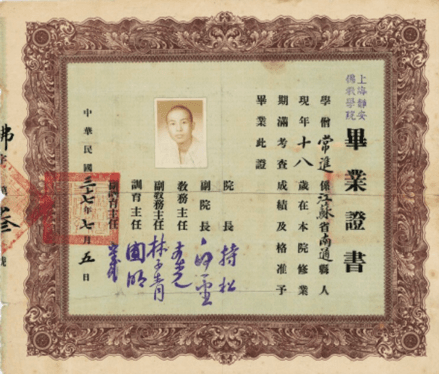 上海靜安
佛教學院
畢業證書
學僧常進係江蘇省南通縣人
現年十八歲在本院修業
期滿考查成績及格准予
畢業此證
院長 持松
副院長
教務主任
副教務主任 林子青
訓育主任
副訓育主任
中華民國三七年七月五日
佛字第